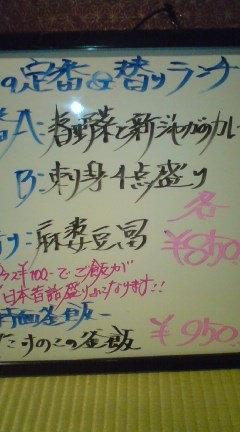 の定番&替りランチ
番A:春野菜と新ジャガのカレー
B:刺身4点盛り
各
り:麻婆豆腐
¥850
プラス¥100-でご飯が
日本昔話盛りになります!!
釜飯-
たけのこの釜飯
¥950